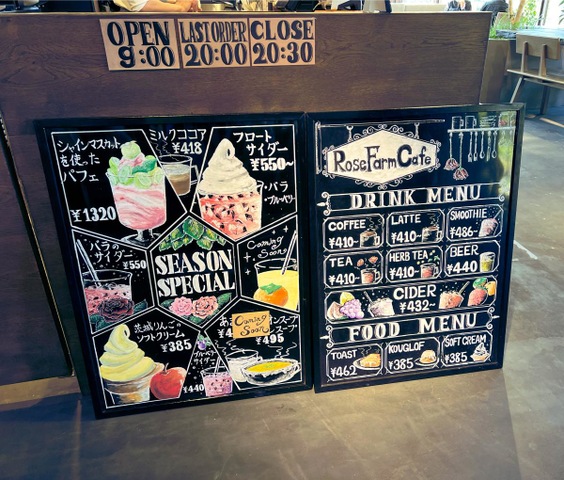 OPEN
9:00
LAST ORDER
20:00
CLOSE
20:30
シャインマスカット
を使った
パフェ
¥1320
ミルクココア
¥418
フロート
サイダー
¥550~
・バラ
・ブルーベリー
バラの
サイダー
¥550
SEASON
SPECIAL
Coming
Soon
茨城りんごの
ソフトクリーム
¥385
ブルーベリー
サイダー
¥440
Coming
Soon
¥495
Rose Farm Cafe
DRINK MENU
COFFEE
¥410-
LATTE
¥410-
SMOOTHIE
¥486-
TEA
¥410-
HERB TEA
¥410-
BEER
¥440
CIDER
¥432~
FOOD MENU
TOAST
¥462
KOUGLOF
¥385
SOFT CREAM
¥385